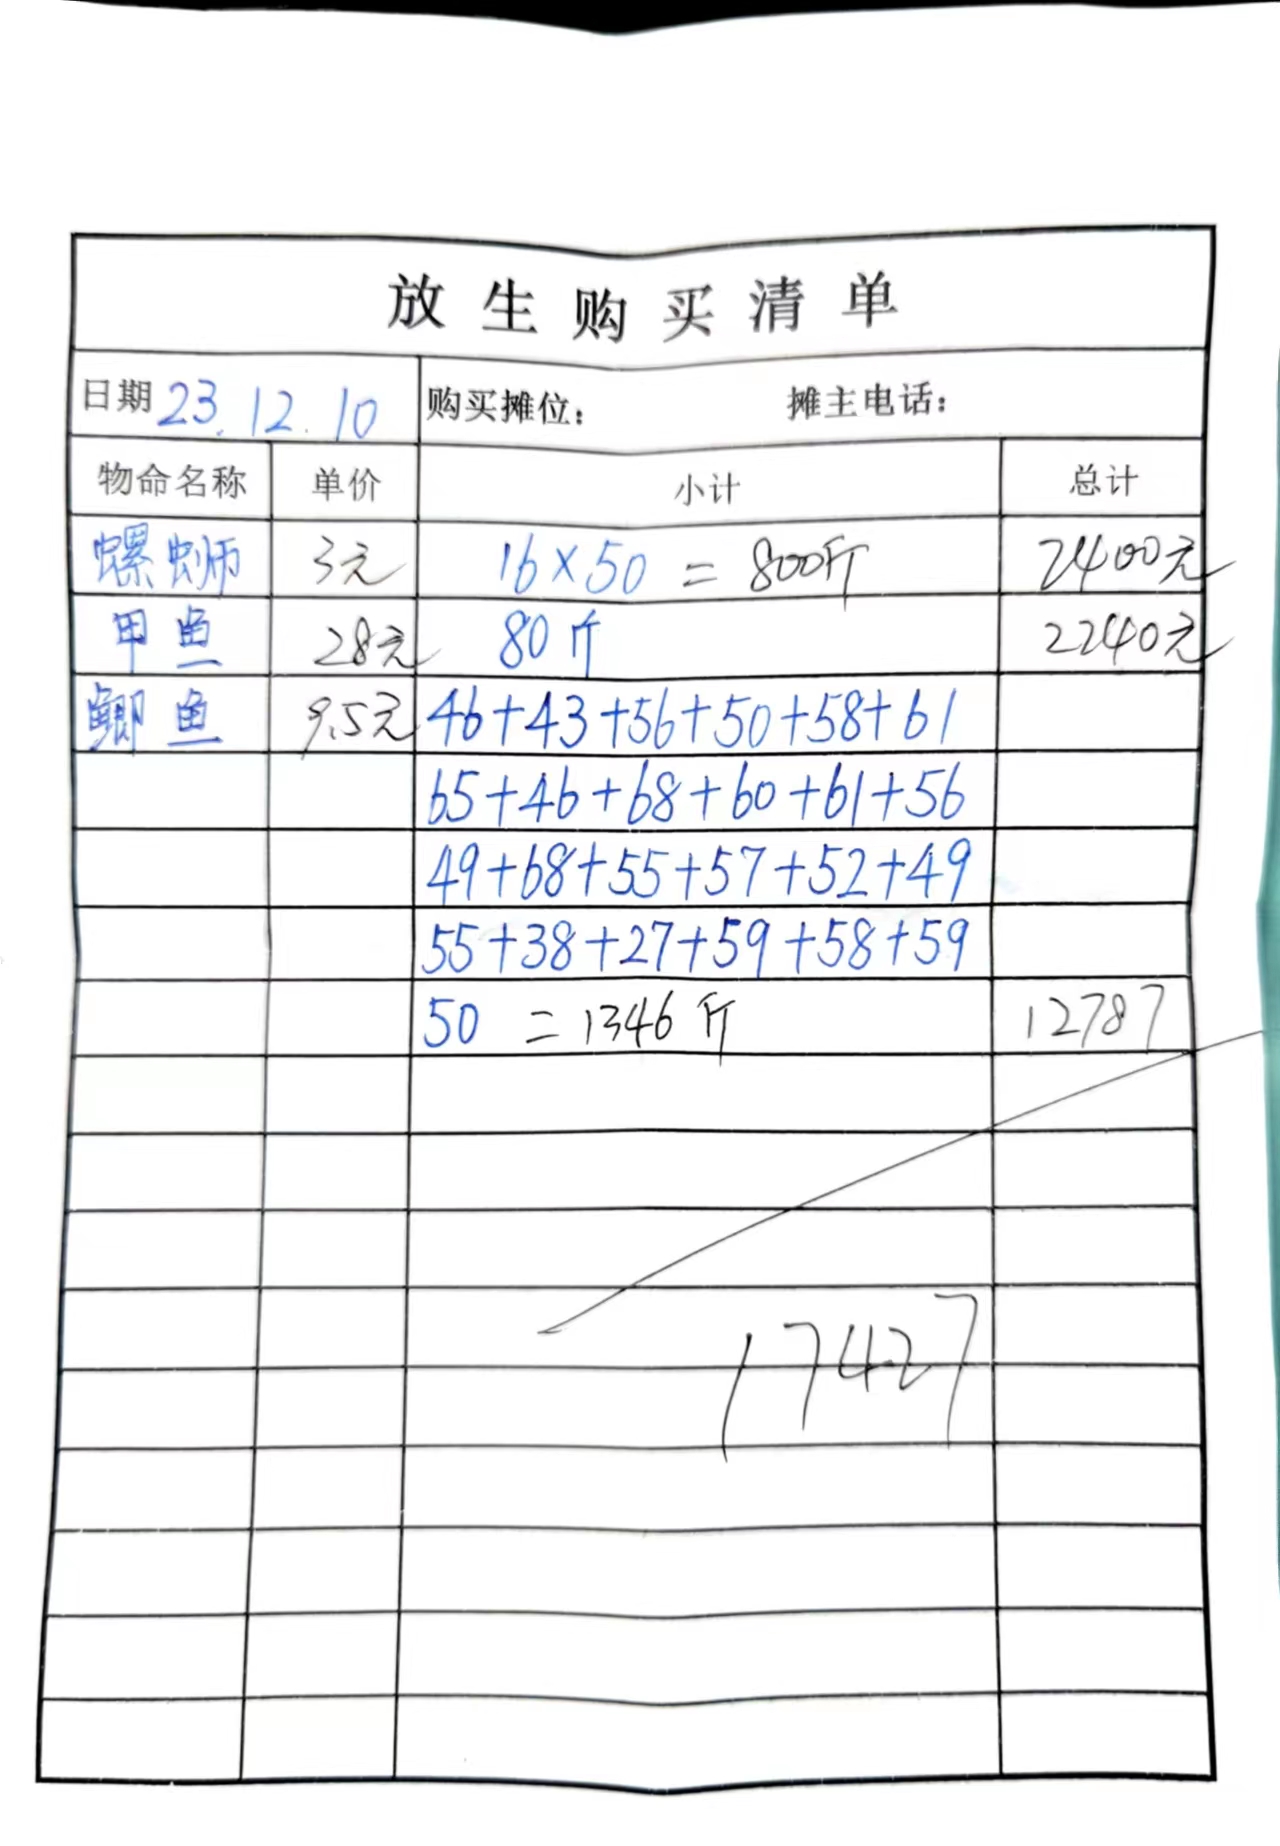 放生购买清单
日期 23.12.10 购买摊位： 摊主电话：
物命名称 单价 小计 总计
螺蛳 3元 16×50 = 800斤 2400元
甲鱼 28元 80斤 2240元
鲫鱼 9.5元 46+43+56+50+58+61
65+46+68+60+61+56
49+68+55+57+52+49
55+38+27+59+58+59
50 = 1346斤 12787
17427